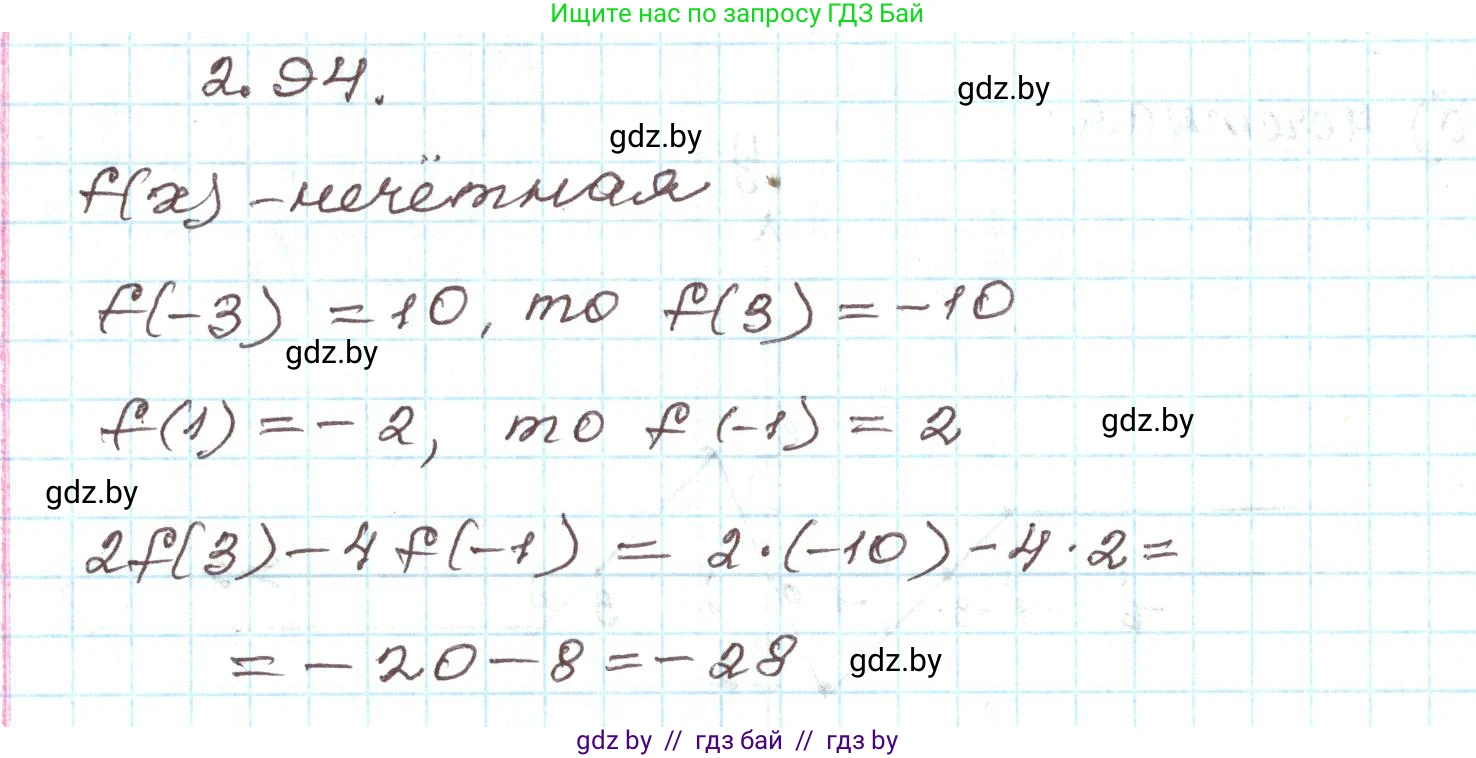 Ищите нас по запросу ГДЗ Бай
2.94.
gdz.by
gdz.by
f(x) - нечётная
f(-3) = 10, то f(3) = -10
gdz.by
f(1) = - 2, то f(-1) = 2
gdz.by
gdz.by
2f(3) - 4f(-1) = 2·(-10) - 4·2 =
= - 20 - 8 = - 28
gdz.by
gdz by // гдз бай // гдз by